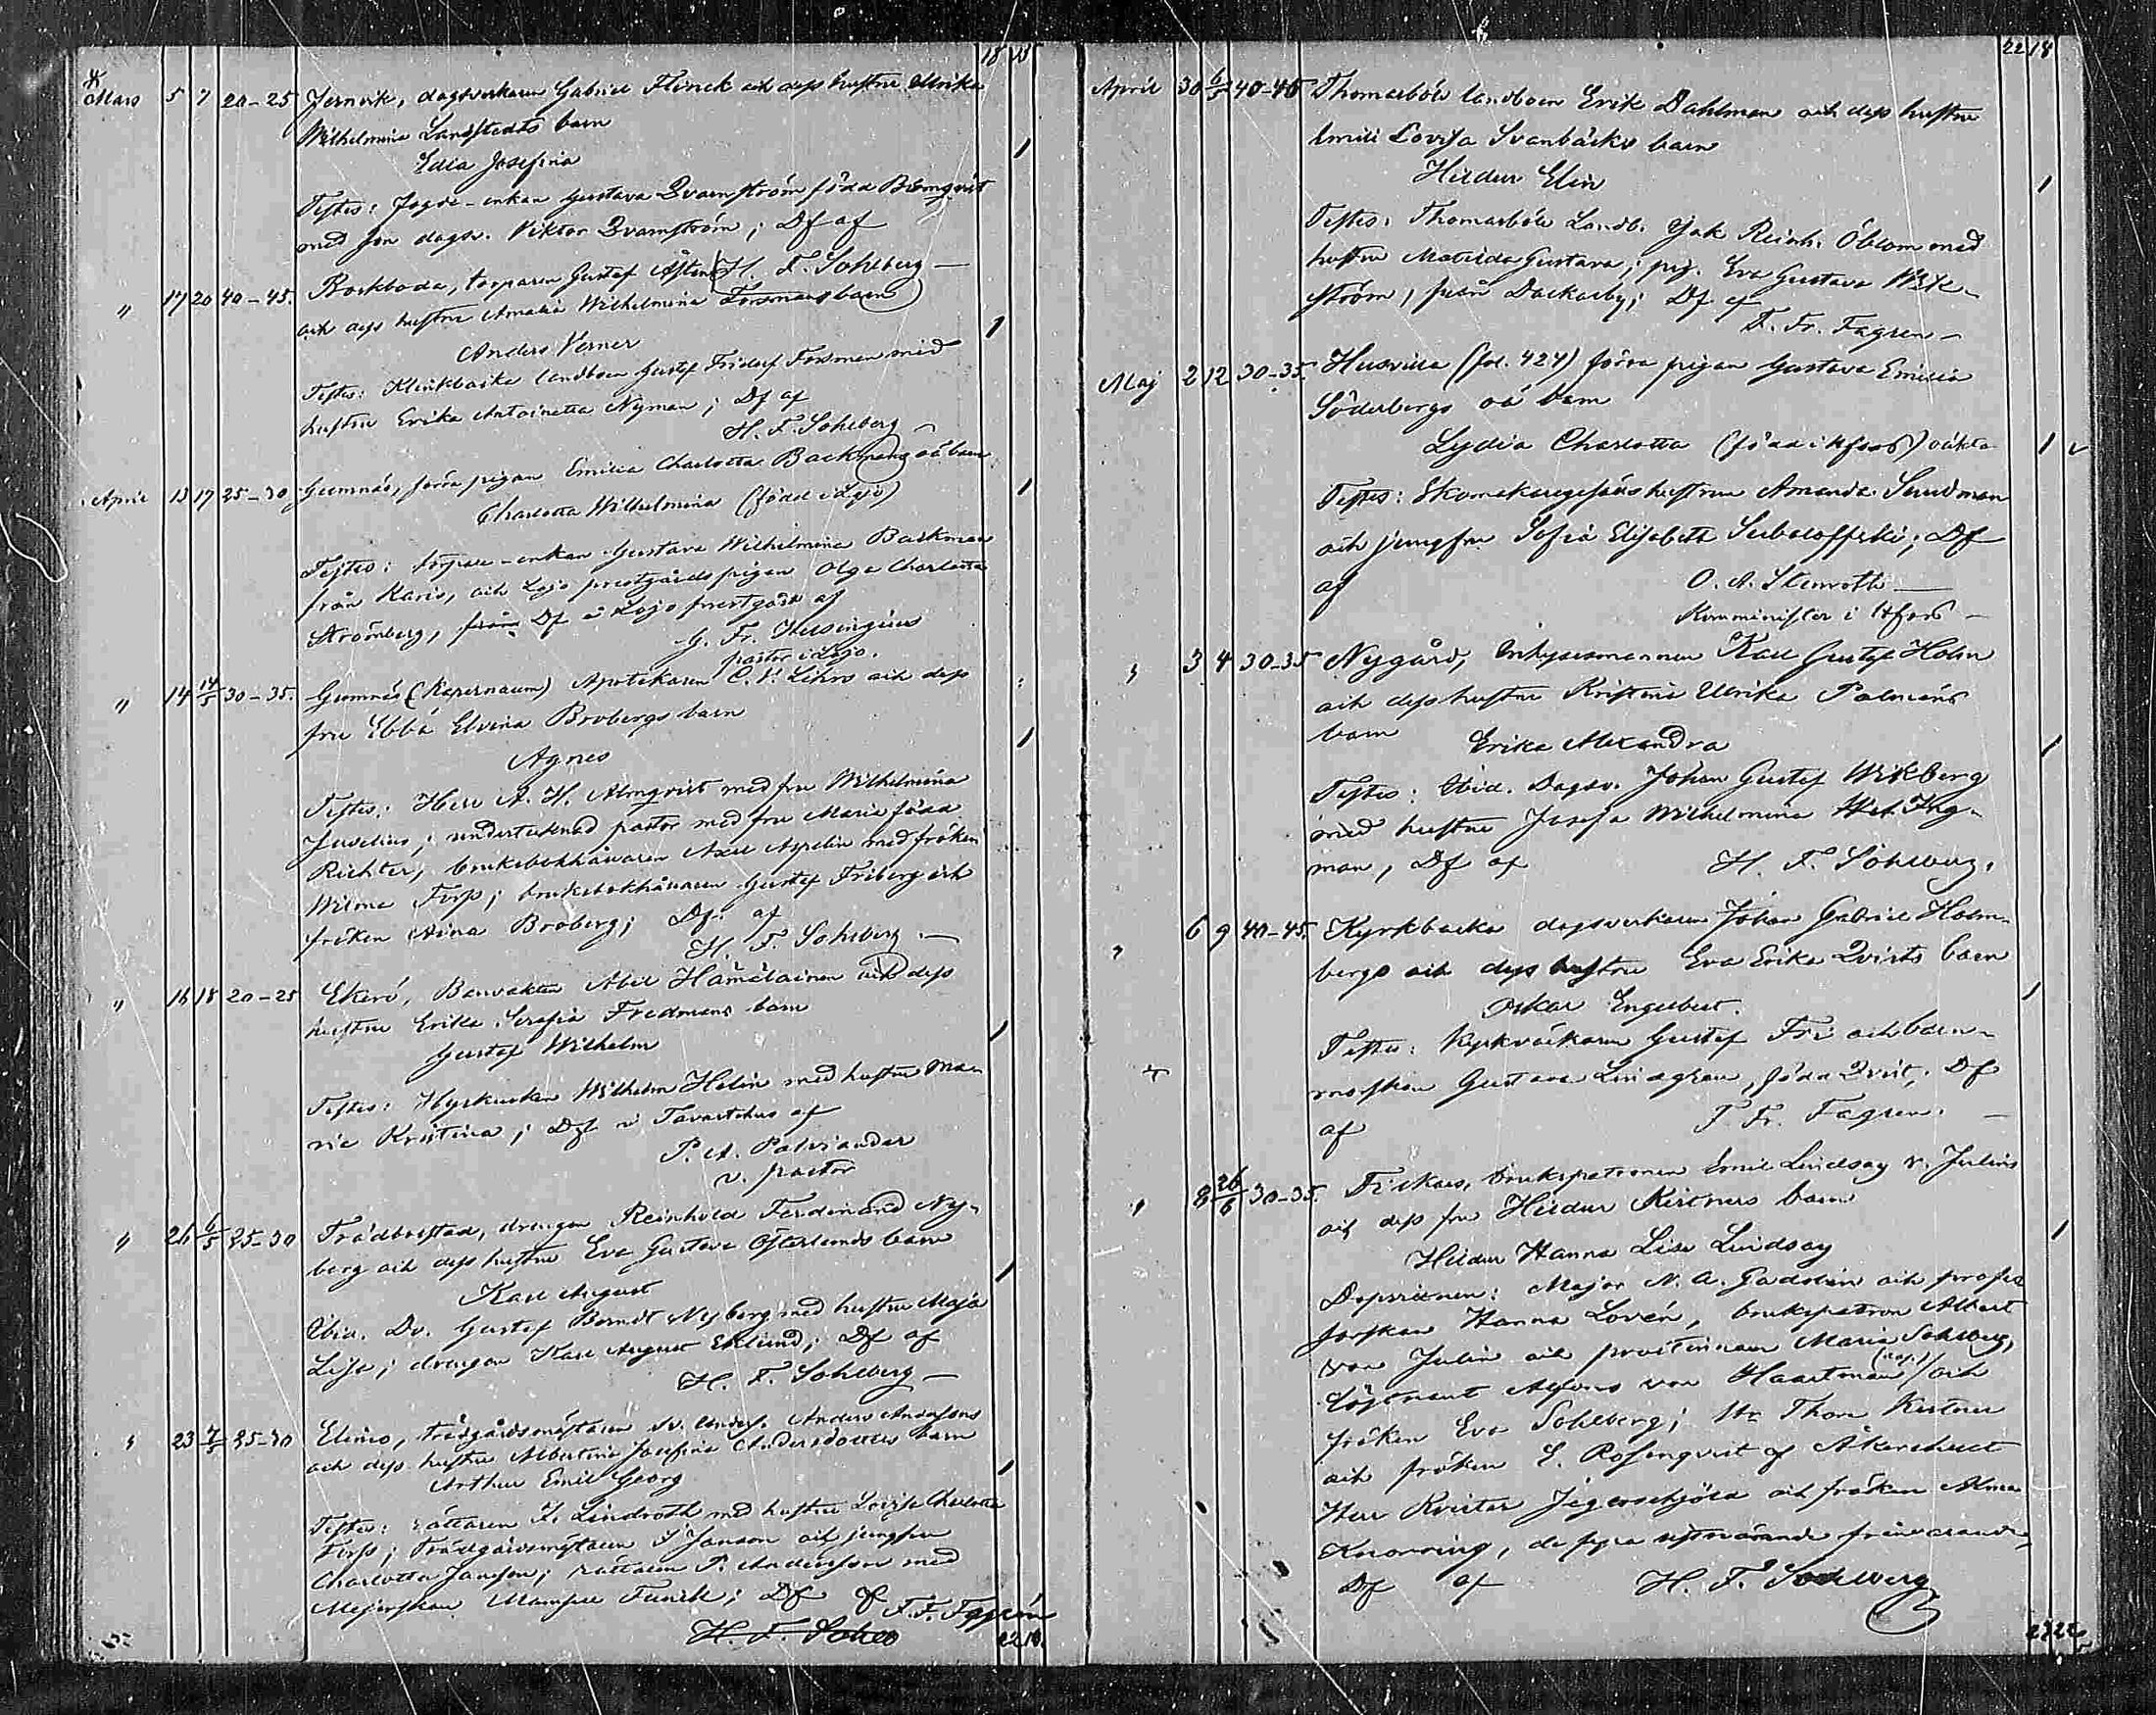 18 15
Mars 5 7 20-25 Jernvik, dagsverkaren Gabriel Flinck och dess hustru Ulrika
Wilhelmina Landstedts barn
Edla Josefina
Testes: fogde-enkan Gustava Qvarnström född Blomqvist
med son dagsv. Viktor Qvarnström; Df af
H. F. Sohlberg
" 17 20 40-45. Backboda, torparen Gustaf
och dess hustru Amalia Wilhelmina Forsmans barn
Anders Verner
Testes: Klinkbacka landboen Gustaf Fridolf Forsman med
hustru Erika Antoinetta Nyman; Df af
H. F. Sohlberg
April 13 17 25-30 Gumnäs, förra pigan Emilia Charlotta Backmans oä barn
Charlotta Wilhelmina (född i Lojo)
Testes: torpare-enkan Gustava Wilhelmina Backman
från Karis, och Lojo prestgårds pigan Olga Charlotta
Strömberg, från Df i Lojo prestgård af
G. Fr. Helsingius
pastor i Lojo.
" 14 14/5 30-35. Gumnäs (Kapernaum) Apotekaren C. V. Lihrs och dess
fru Ebba Elvira Brobergs barn
Agnes
Testes: Herr A. H. Almqvist med fru Wilhelmina
Juselius; undertecknad pastor med fru Marie född
Richter, bruksbokhållaren Axel Aspelin med fröken
Wilma Forss; bruksbokhållaren Gustaf Friberg och
fröken Aina Broberg; Df af
H. F. Sohlberg
" 16 18 20-25 Ekerö, Banvakten Abel Hämäläinen och dess
hustru Erika Serafia Fredmans barn
Gustaf Wilhelm
Testes: Hyrkusken Wilhelm Helin med hustru Ma-
ria Kristina; Df i Tavastehus af
P. A. Palviander
v. pastor
" 26 6/5 25-30 Trädbollstad, drängen Reinhold Ferdinand Ny-
berg och dess hustru Eva Gustava Österlunds barn
Karl August
Ibid. Dv. Gustaf Berndt Nyberg med hustru Maja
Lisa; drängen Karl August Eklund; Df af
H. F. Sohlberg
" 23 7/5 25-30 Elimo, trädgårdsmästaren Anders Anderssons
och dess hustru Albertina Josefina Andersdotters barn
Arthur Emil Georg
Testes: rättaren F. Lindroth med hustru Lovisa Charlotta
Forss; Trädgårdsmästaren Janson och jungfru
Charlotta Jansson; rättaren P. Andersson med
Mejerskan Mamsell Funck; Df af F. F. Fagrén
H. F. Sohlb
22 18.
22 18
April 30 6/5 40-45 Thomasböle landboen Erik Dahlman och dess hustru
Emili Lovisa Svanbäcks barn
Hildur Elin
Testes: Thomasböle Landb. Jak Reinh. Öblom med
hustru Matilda Gustava; pig. Eva Gustava Wik-
ström, från Dackarby; Df af
F. Fr. Fagren
Maj 2 12 30-35. Husvilla (fol. 424) förra pigan Gustava Emilia
Söderbergs oä barn
Lydia Charlotta (född i Hfors) oäkta
Testes: Skomakaregesälls hustrun Amanda Sundman
och jungfru Sofia Elisabeth ; Df
af O. A. Stenroth
Komminister i Hfors
" 3 4 30-35 Nygård, Inhysesmannen Karl Gustaf Holm
och dess hustru Kristina Ulrika Palmens
barn Erika Alexandra
Testes: Ibid. Dagsv. Johan Gustaf Wikberg
med hustru Josefa Wilhelmina Hag-
man, Df af H. F. Sohlberg.
" 6 9 40-45. Kyrkbacka dagsverkaren Johan Gabriel Holm-
bergs och dess hustru Eva Erika Qvists barn
Oskar Engelbert.
Testes: Kyrkväktaren Gustaf Fri och barn-
morskan Gustava Lindgren, född Qvist; Df
af F. Fr. Fagren.
" 8 26/6 30-35. Fiskars, brukspatronen Emil Lindsay v. Julins
och dess fru Hildur Kistners barn
Hildur Hanna Lisa Lindsay
Dopvittnen: Major N. A. Gadolin och profes
sorskan Hanna Lovén, brukspatron Albert
von Julin och prostinnan Maria Sohlberg,
Löjtnant Alfons von Haartman och
fröken Eva Sohlberg; Hr Thom Kistner
och fröken E. Rosenqvist af Åkershult
Herr Krister Jägerschjöld och fröken Alma
Knorring, de fyra sistnämnde frånvarande,
Df af H. F. Sohlberg
23 22